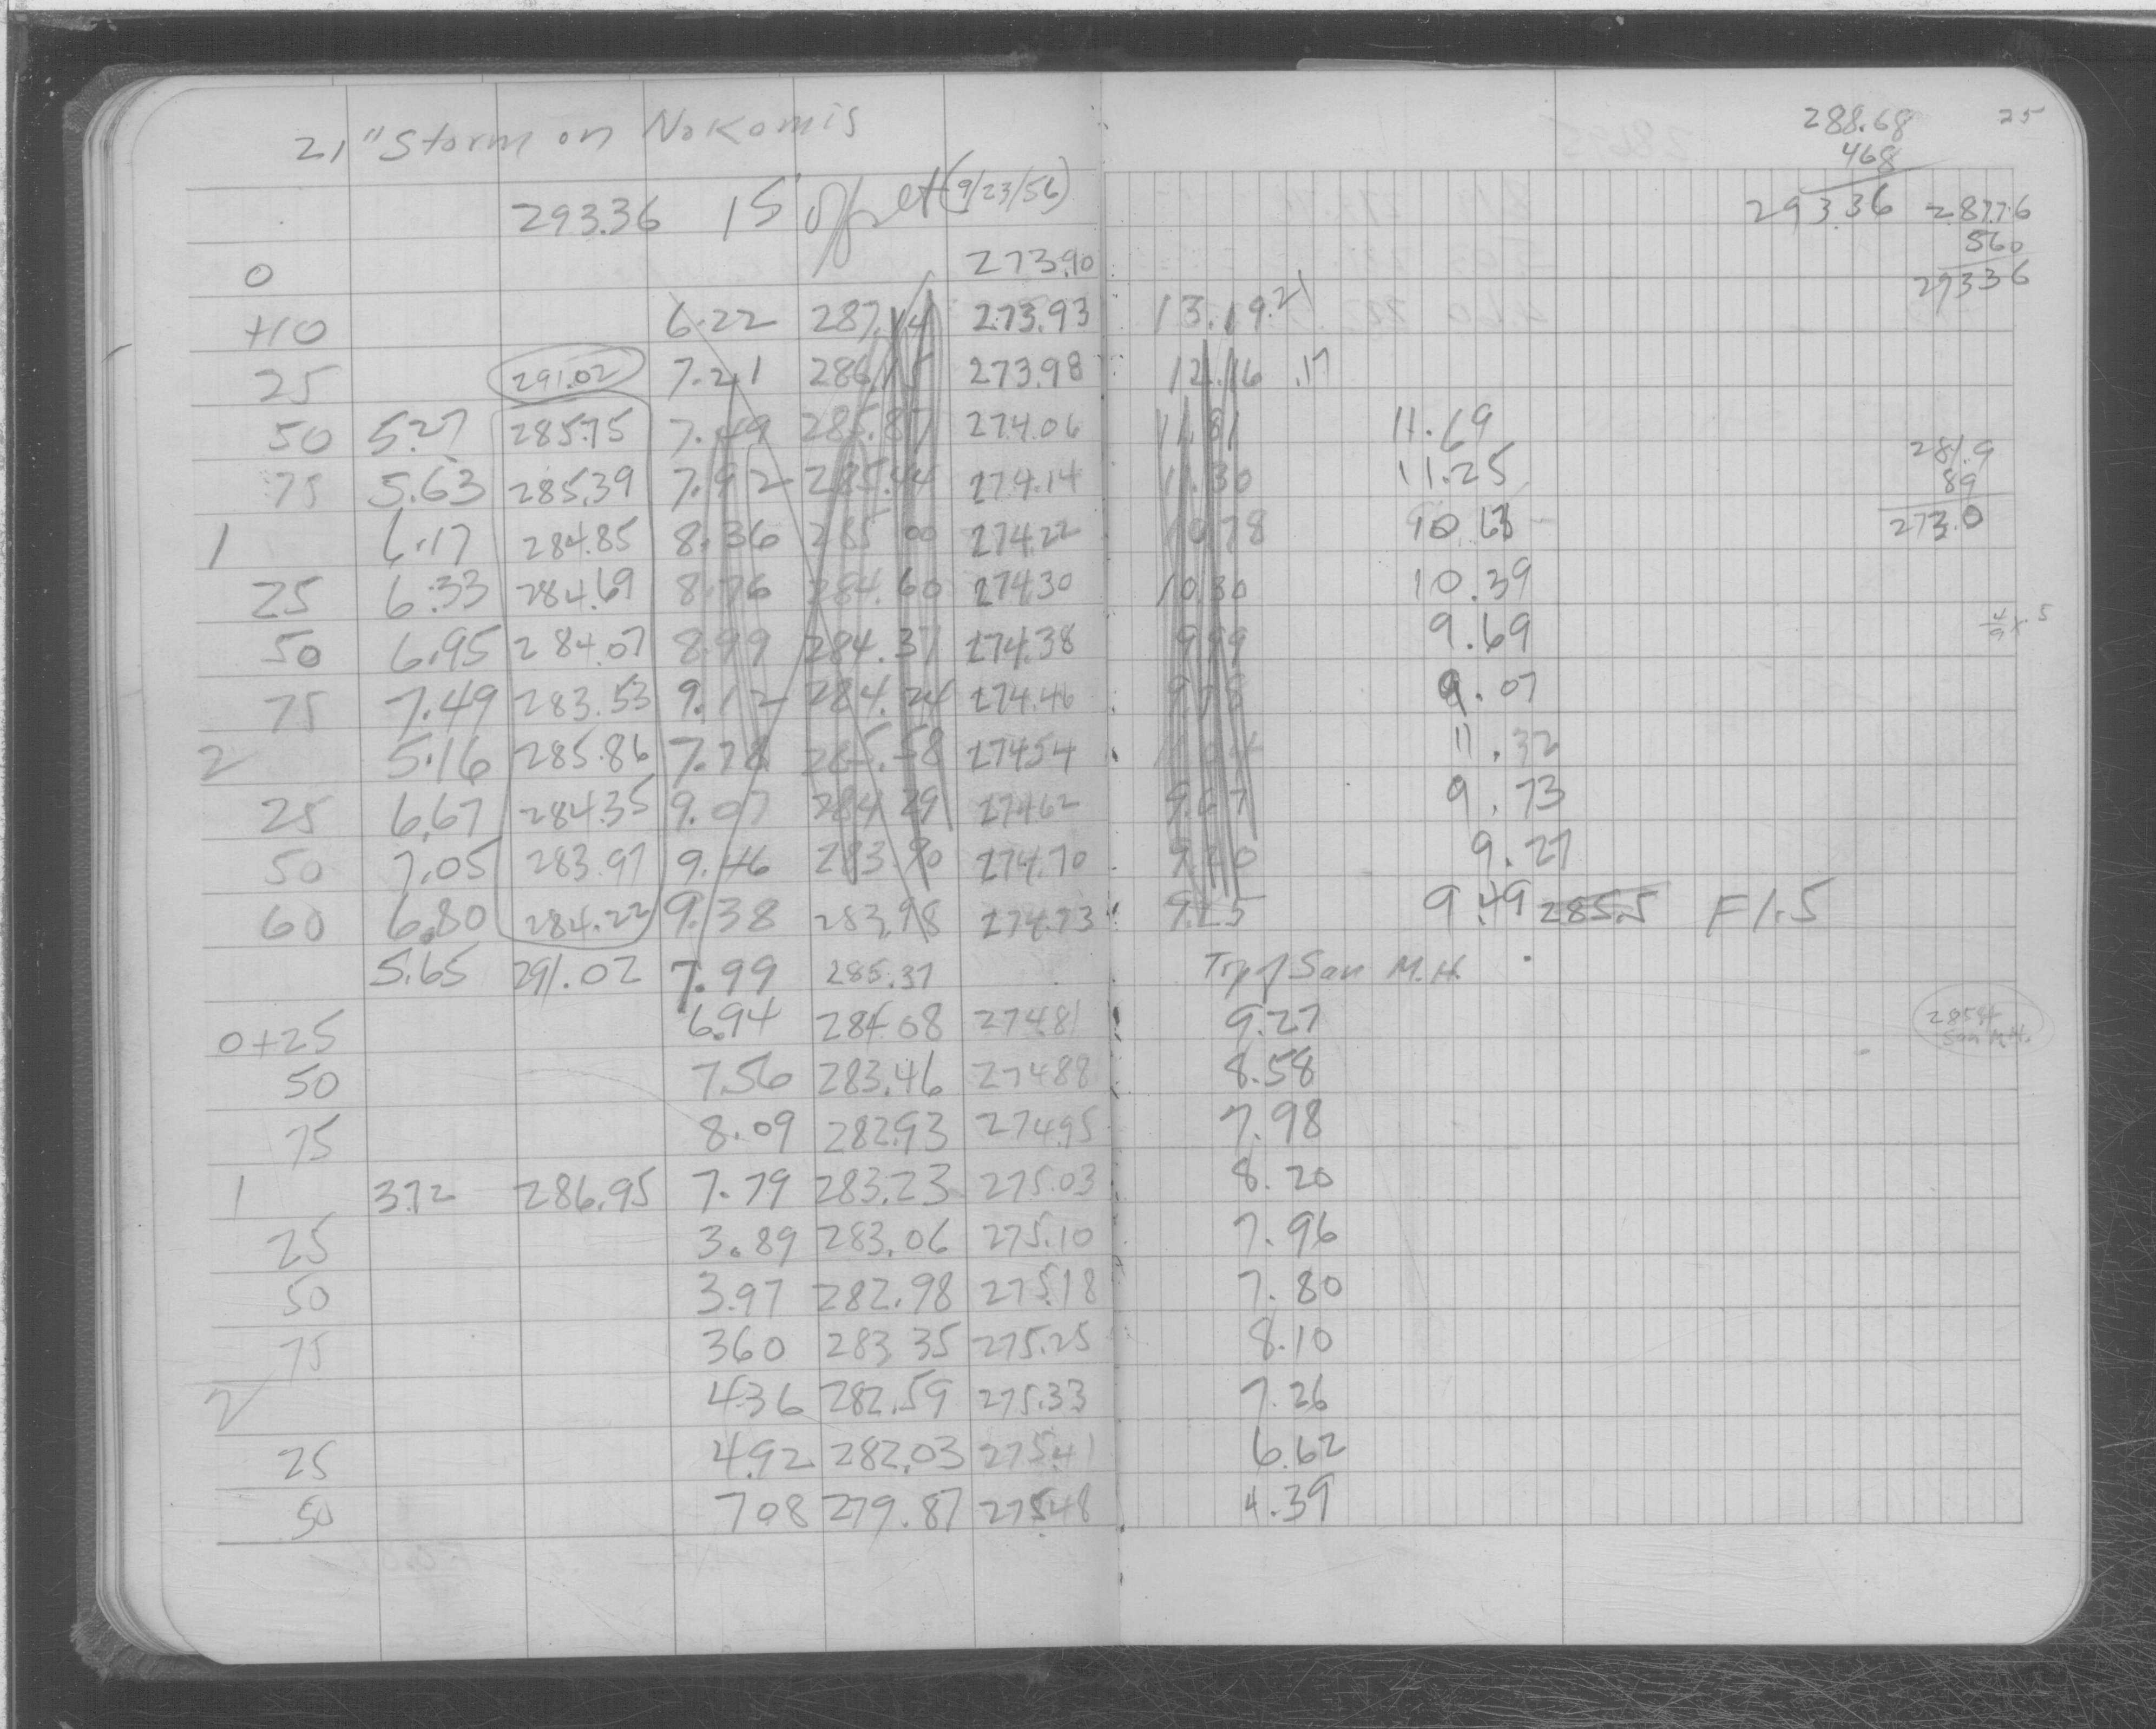 21" Storm on Nokomis
293.36 15' offset (9/23/56)
288.68 25
468
293.36 287.76
560
293.36
0 273.90
+10 6.22 287.14 273.93 13.19 .21
25 291.02 7.21 286.15 273.98 12.16 .17
50 5.27 285.75 7.49 285.87 274.06 11.81 11.69
75 5.63 285.39 7.92 285.44 274.14 11.30 11.25
281.9
89
273.0
1 6.17 284.85 8.36 285.00 274.22 10.78 10.63
25 6.33 284.69 8.76 284.60 274.30 10.30 10.39
50 6.95 284.07 8.99 284.37 274.38 9.99 9.69
75 7.49 283.53 9.12 284.24 274.46 9.78 9.07
2 5.16 285.86 7.78 285.58 274.54 11.04 11.32
25 6.67 284.35 9.07 284.29 274.62 9.67 9.73
50 7.05 283.97 9.46 283.90 274.70 9.20 9.27
60 6.80 284.22 9.38 283.98 274.73 9.25 9.49 285.5 F1.5
5.65 291.02 7.99 285.37 Top of San M.H.
0+25 6.94 284.08 274.81 9.27
San M.H.
50 7.56 283.46 274.88 8.58
75 8.09 282.93 274.95 7.98
1 3.72 286.95 7.79 283.23 275.03 8.20
25 3.89 283.06 275.10 7.96
50 3.97 282.98 275.18 7.80
75 360 283.35 275.25 8.10
2 4.36 282.59 275.33 7.26
25 4.92 282.03 275.41 6.62
50 708 279.87 275.48 4.39